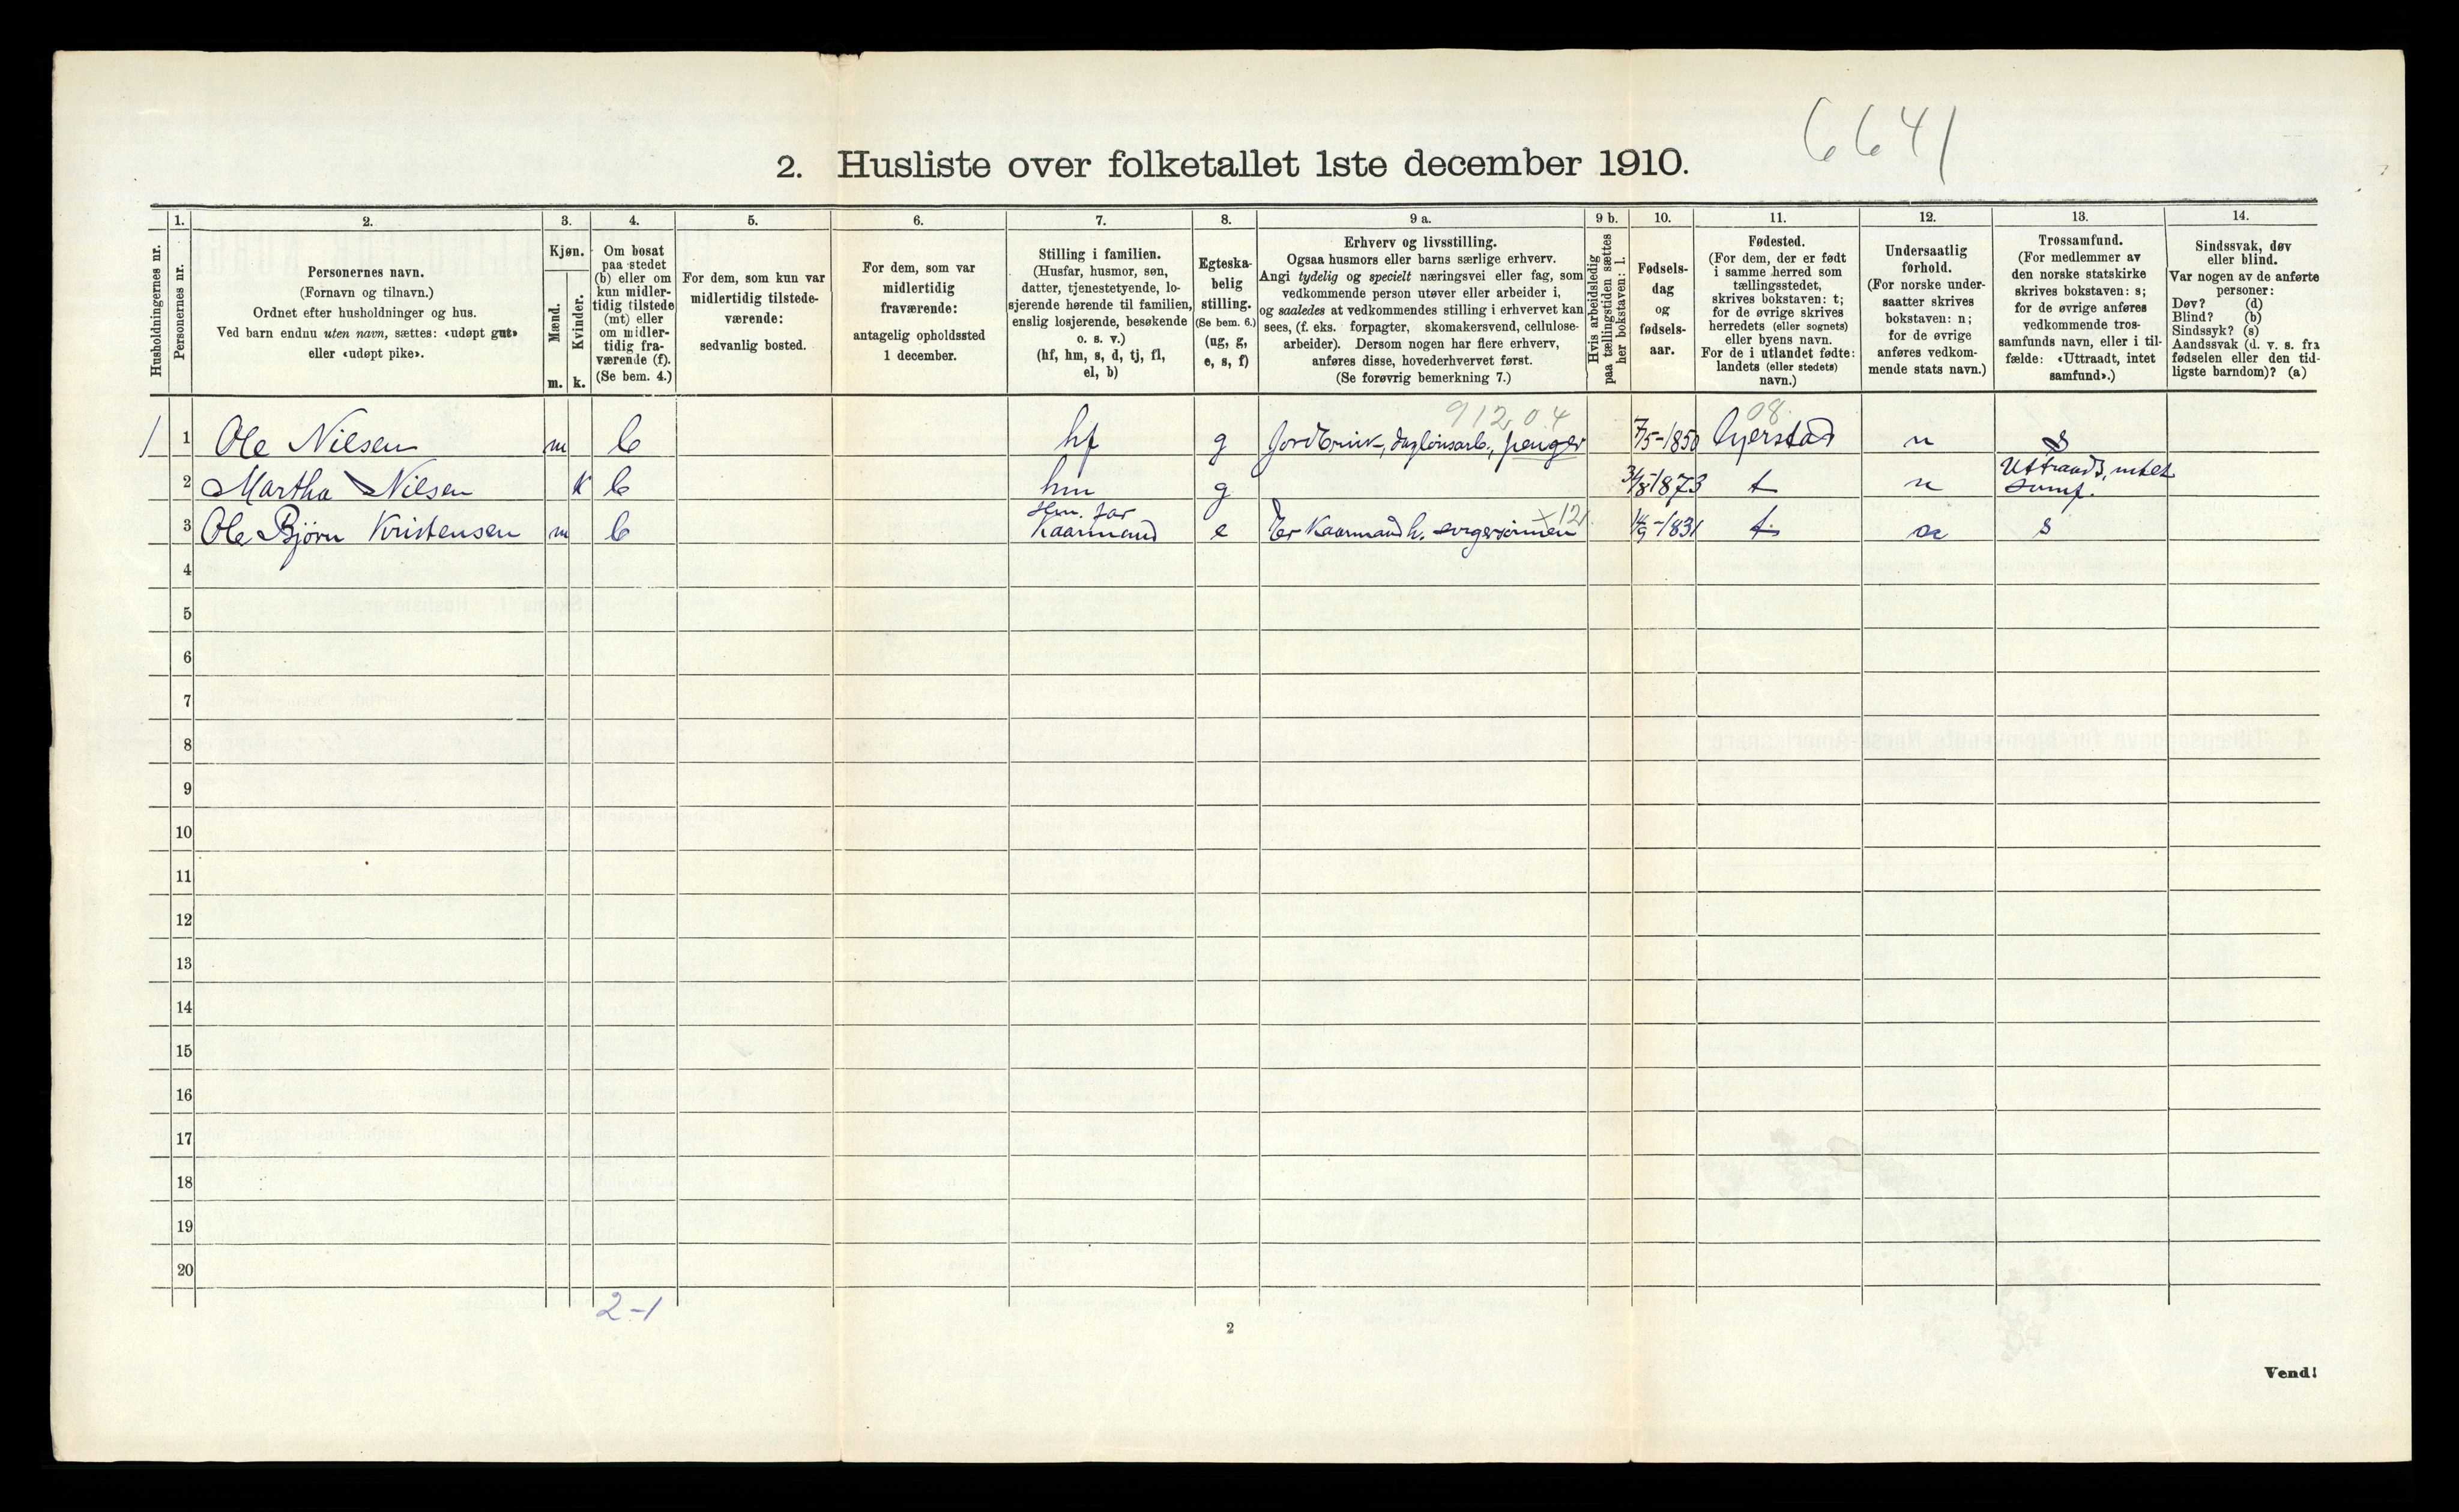 6641
2. Husliste over folketallet 1ste december 1910.
Husholdningernes nr.
1.
Personernes nr.
2.
Personernes navn.
(Fornavn og tilnavn.)
Ordnet efter husholdninger og hus.
Ved barn endnu uten navn, sættes: «udøpt gut»
eller «udøpt pike».
3.
Kjøn.
Mænd.
Kvinder.
m. k.
4.
Om bosat
paa stedet
(b) eller om
kun midler-
tidig tilstede
(mt) eller
om midler-
tidig fra-
værende (f).
(Se bem. 4.)
5.
For dem, som kun var
midlertidig tilstede-
værende:
sedvanlig bosted.
6.
For dem, som var
midlertidig
fraværende:
antagelig opholdssted
1 december.
7.
Stilling i familien.
(Husfar, husmor, søn,
datter, tjenestetyende, lo-
sjerende hørende til familien,
enslig losjerende, besøkende
o. s. v.)
(hf, hm, s, d, tj, fl,
el, b)
8.
Egteska-
belig
stilling.
(Se bem. 6.)
(ug, g,
e, s, f)
9 a.
Erhverv og livsstilling.
Ogsaa husmors eller barns særlige erhverv.
Angi tydelig og specielt næringsvei eller fag, som
vedkommende person utøver eller arbeider i,
og saaledes at vedkommendes stilling i erhvervet kan
sees, (f. eks. forpagter, skomakersvend, cellulose-
arbeider). Dersom nogen har flere erhverv,
anføres disse, hovederhvervet først.
(Se forøvrig bemerkning 7.)
9 b.
Hvis arbeidsledig
paa tællingstiden sættes
her bokstaven: l.
10.
Fødsels-
dag
og
fødsels-
aar.
11.
Fødested.
(For dem, der er født
i samme herred som
tællingsstedet,
skrives bokstaven: t;
for de øvrige skrives
herredets (eller sognets)
eller byens navn.
For de i utlandet fødte:
landets (eller stedets)
navn.)
12.
Undersaatlig
forhold.
(For norske under-
saatter skrives
bokstaven: n;
for de øvrige
anføres vedkom-
mende stats navn.)
13.
Trossamfund.
(For medlemmer av
den norske statskirke
skrives bokstaven: s;
for de øvrige anføres
vedkommende tros-
samfunds navn, eller i til-
fælde: «Uttraadt, intet
samfund».)
14.
Sindssvak, døv
eller blind.
Var nogen av de anførte
personer:
Døv? (d)
Blind? (b)
Sindssyk? (s)
Aandssvak (d. v. s. fra
fødselen eller den tid-
ligste barndom)? (a)
91204 08
1 1 Ole Nilsen m b hf g Jordbruk, daglønsarb., penger 7/5-1850 Gjerstad n s
Uttraadt, intet
2 Martha Nilsen k b hm g 3/8-1873 t n samf.
Hm. far x 12
3 Ole Bjørn Kristensen m b Kaarmand e Er Kaarmand h. svigersønnen 14/9-1831 t n s
4
5
6
7
8
9
10
11
12
13
14
15
16
17
18
19
20
2-1
2
Vend!